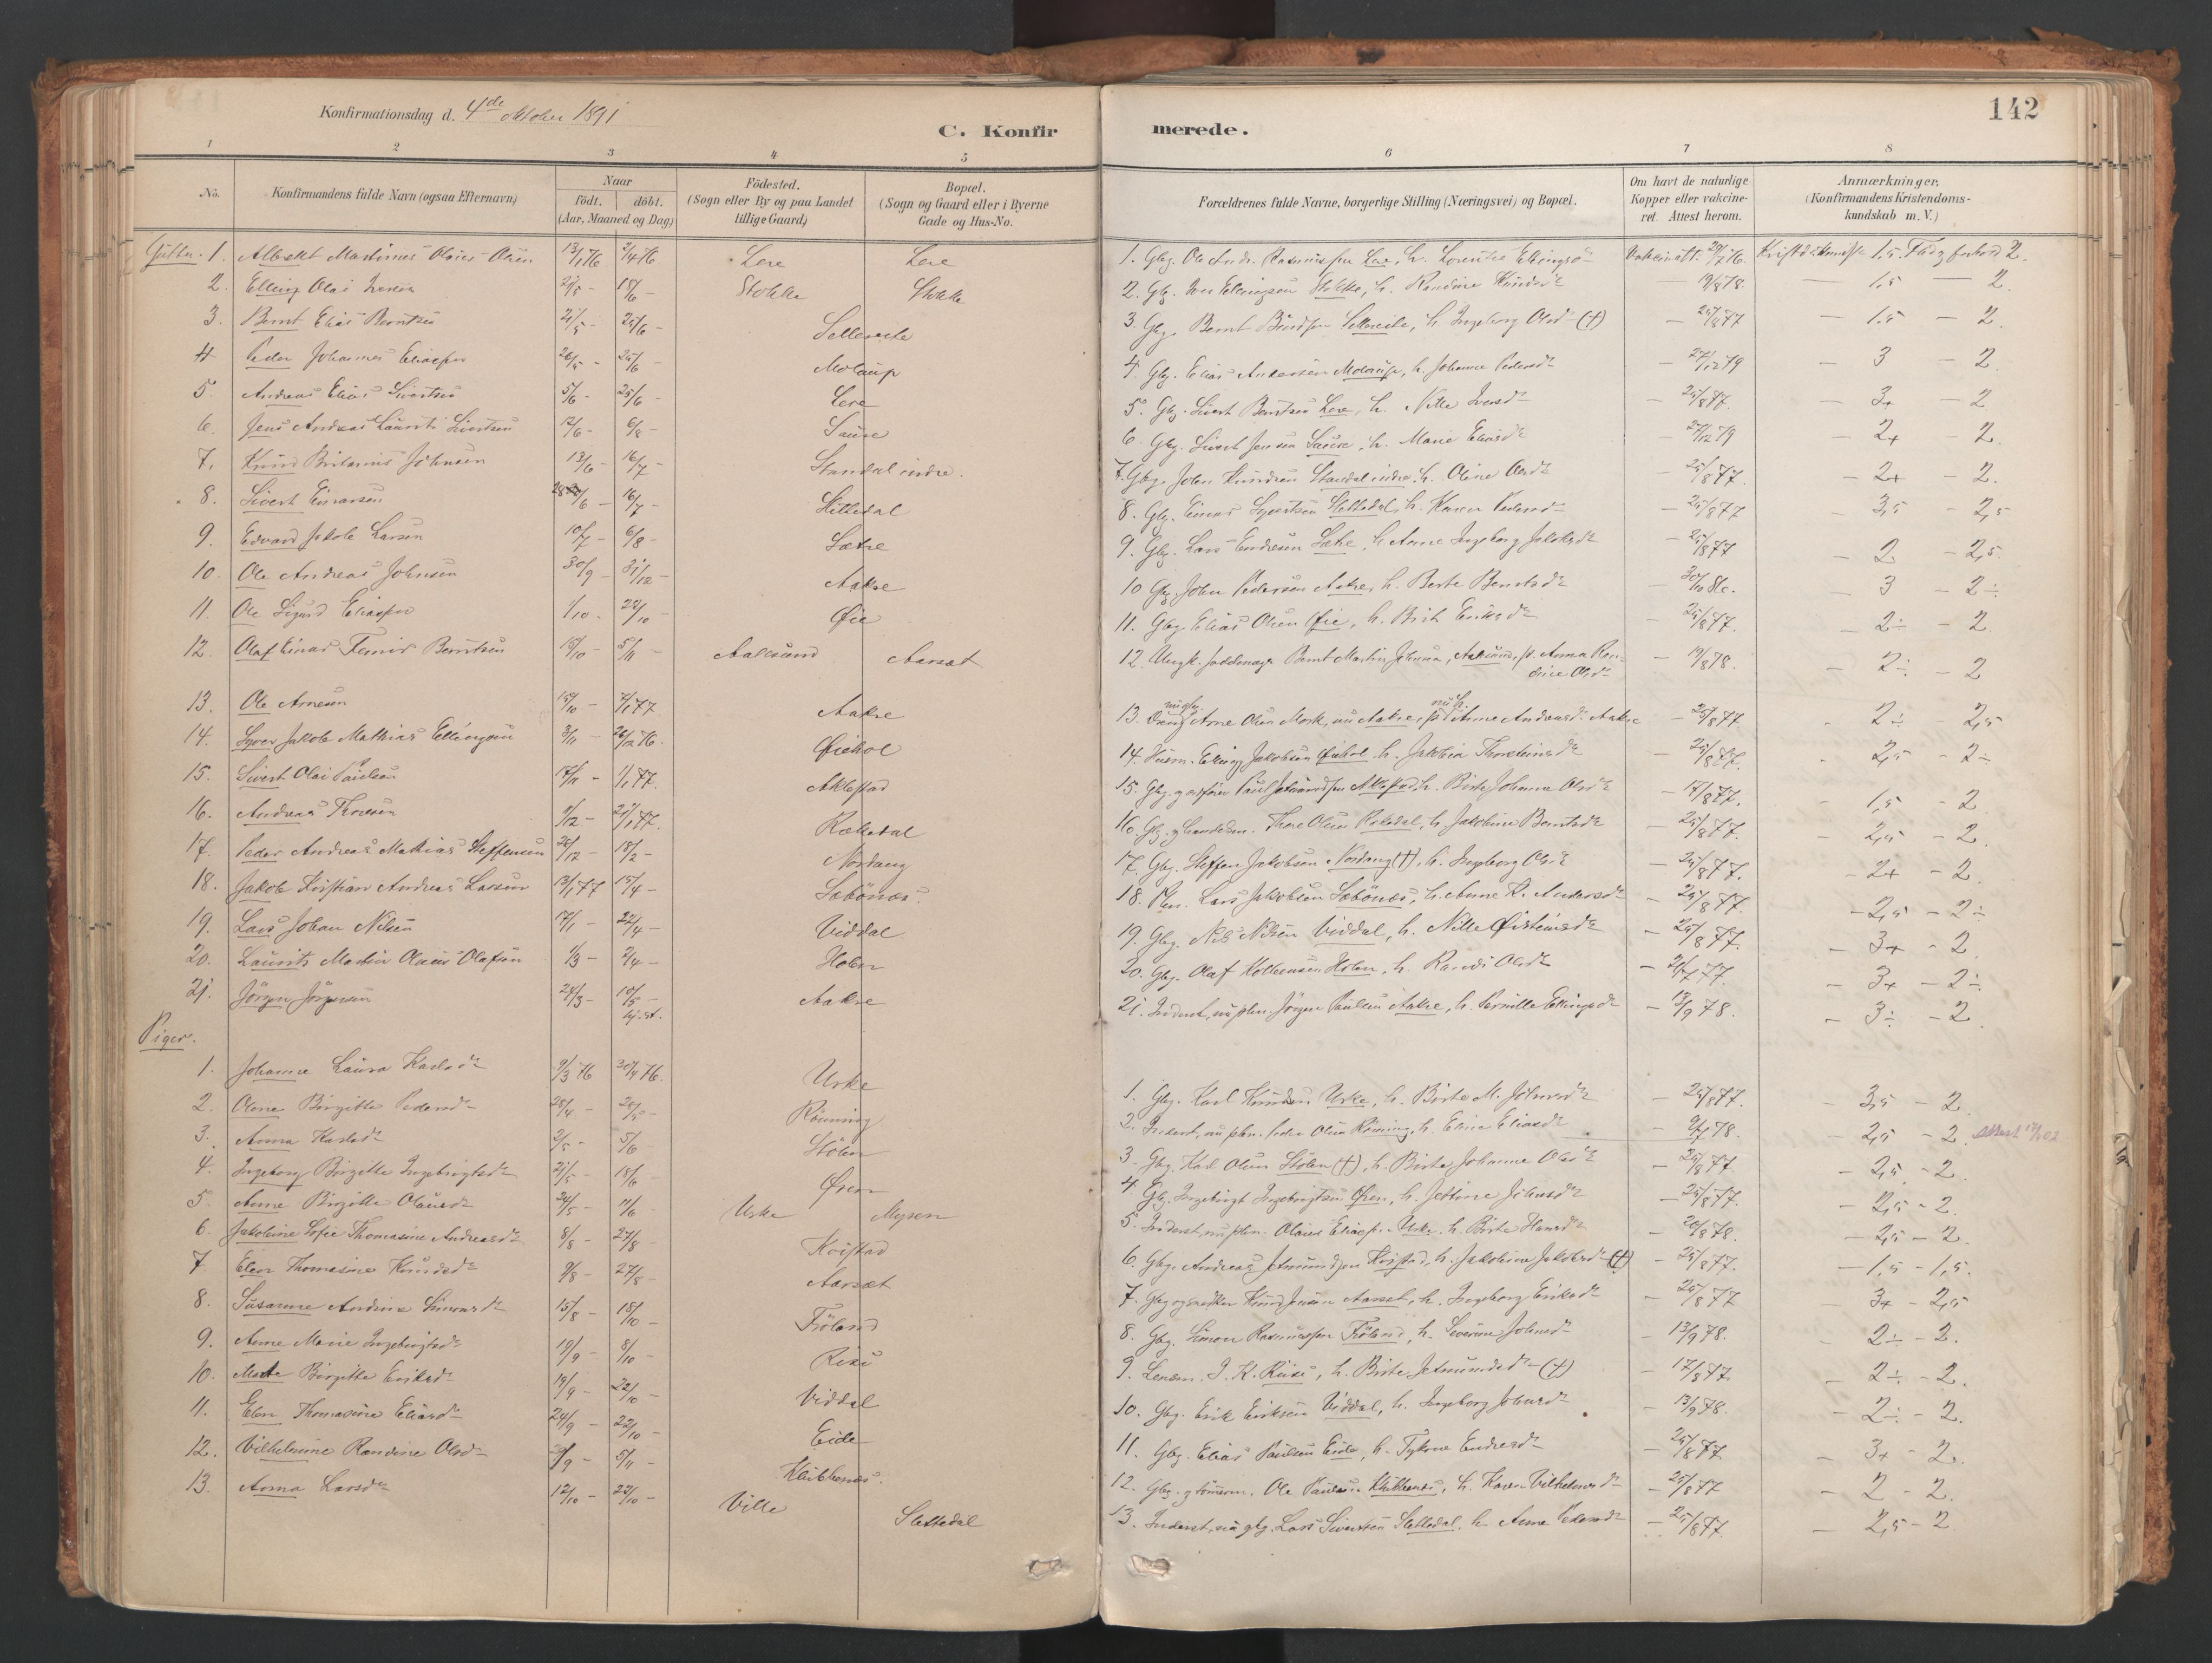 Konfirmationsdag d. 4de oktober 1891
C. Konfirmerede.
142
1 2 3 4 5 6 7 8
No.
Konfirmandens fulde Navn (ogsaa Efternavn)
Naar
födt. döbt.
(Aar, Maaned og Dag)
Födested.
(Sogn eller By og paa Landet
tillige Gaard)
Bopæl.
(Sogn og Gaard eller i Byerne
Gade og Hus-No.
Forældrenes fulde Navne, borgerlige Stilling (Næringsvei) og Bopæl.
Om havt de naturlige
Kopper eller vakcine-
ret. Attest herom.
Anmærkninger,
(Konfirmandens Kristendoms-
kundskab m. V.)
Gutter. 1. Albrekt Martinus Olsen 13/1 76 2/4 76 Lere Lere 1. Gbg. Ole Andr. Rasmussen Lere, h. 2.
2. Elling Olai 18/6 - Stokke Stokke 2. Gbg. Iver Ellingsen Stokke, h. Randine Knudsdr - 19/8 78. - 1,5 2.
3. Bernt Elias Berntsen 21/5 - 25/6 - 3. Gbg. Bernt h. Ingeborg Olsdr (†) - 25/8 77 - 1,5 - 2.
4 Peder Johannes Eliassen 26/5 - 25/6 - Molaup 4. Gbg. Elias Andersen Molaup, h. Johanne Pedersdr - 27/12 79 - 3 - 2.
5. Andreas Elias Sivertsen 5/6 - 25/6 - Lere 5. Gbg. Sivert Berntsen Lere, h. Nille Iversdr - 25/8 77. - 3+ - 2
6. Jens Andreas Laurits Sivertsen 12/6 - 6/8 - Saure 6. Gbg. Sivert Jensen Saure, h. Marie Eliasdr - 27/12 79 - 2+ - 2.
7. Knud Johnsen 13/6 - 16/7 - Standal indre. 7. Gbg. John Knudsen Standal indre, h. Oline Olsdr - 25/8 77. - 2+ - 2.
8. Sivert Einarsen 16/7 - Slettedal 8. Gbg. Einar Syvertsen Slettedal, h. Karen Pedersdr - 25/8 77 - 3,5 - 2,5
9. Edvard Jakob Larsen 10/7 - 6/8 - Sætre 9. Gbg. Lars Endresen Sætre, h. Anne Ingeborg Jakobsdr - 25/8 77 - 2 - 2,5.
10. Ole Andreas Johnsen 30/9 - 31/12 - Aakre 10 Gbg. John Pedersen Aakre, h. Berte Berntsdr - 30/10 80. - 3 - 2÷
11. Ole Sigurd Eliassen 1/10. 22/10 - Øie 11. Gbg. Elias Olsen Øie, h. Brit Eriksdr - 25/8 77. - 2÷ - 2.
12. Olaf Einar Berntsen 15/10 - 5/11 - Aalesund Aarsæt 12. Ungk. Bernt Martin Johnsen, Aalesund, p. Anna Ran-
dine Olsdr - 19/8 78. - 2÷ - 2
13. Ole Arnesen 15/10 - 7/1 77 Aakre 13. Arne Olsen Mork, nu Aakre, Anne Andreasdr Aakre - 25/8 77. - 2÷ - 2,5
14. Syver Jakob Mathias Ellingsen 3/11 - 26/12 76. Øiehol 14. Husm. Elling Jakobsen Øiehol h. Jakobia Thorsteinsdr - 25/8 77. - 2,5 - 2÷
15. Sivert Olai Paulsen 17/11 - 1/1 77. Aklestad 15. Gbg. Paul Aklestad, h. Birte Johanne Olsdr - 17/8 77. - 1,5 - 2
16. Andreas Thoresen 9/12 - 21/1 77. Rekkedal 16. Gbg. Thore Olsen h. Jakobine Berntsdr - 25/8 77. - 2,5 - 2.
17. Peder Andreas Mathias Steffensen 26/12 - 18/2 - Nordang 17. Gbg. Steffen Jakobsen Nordang (†), h. Ingeborg Olsdr - 25/8 77. - 2+ - 2.
18. Jakob Kristian Andreas Larsen 13/1 77 15/4 - Sæbönæs. 18. Pln. Lars Jakobsen Sæbönæs, h. Anne K. Andersdr - 25/8 77. - 2,5 - 2÷
19. Lars Johan Nilsen 17/1 - 22/4 - Viddal 19. Gbg. Nils Nilsen Viddal, h. Nille Øisteinsdr - 25/8 77. - 3+ - 2
20. Laurits Martin Olaus Olafsen 1/3 - 2/4 - Holen 20. Gbg. Olaf Holen, h. Randi Olsdr - 77. - 3+ - 2÷
21. Jörgen Jörgensen 24/3 - 10/5 - hj. st. Aakre 21. Inderst, nu pln. Jörgen Paulsen Aakre, h. Pernille Ellingsdr - 13/9 78. - 3÷ - 2
Piger.
1. Johanne Laura Karlsdr 9/3 76 30/4 76. Urke 1. Gbg. Karl Knudsen Urke, h. Birte M. Johnsdr - 25/8 77. - 3,5 - 2
2. Oline Birgitte Pedersdr 28/4 - Rönning 2. Inderst, nu pln. Peder Olsen Rönning, h. Eline Eliasdr - 78. - 2,5 - 2. Attest
3. Anna Karlsdr 2/5 - 5/6 Stölen 3. Gbg. Karl Olsen Stölen (†), h. Birte Johanne Olsdr - 25/8 77. - 2,5 - 2.
4. Ingeborg Birgitte Ingebrigtsdr 21/5 - 18/6 Øren 4. Gbg. Ingebrigt Ingebrigtsen Øren, h. Johnsdr - 25/8 77. - 2,5 - 2.
5. Anne Birgitte Olausdr 24/5 - 11/6 Urke Mysen 5. Inderst, nu pln. Olaus Eliass. Urke, h. Birte Hansdr - 20/8 78. - 2,5 - 2.
6. Jakobine Sofie Thomasine Andreasdr 8/8 - 27/8 Koistad 6. Gbg. Andreas Jetmundsen Koistad, h. Jakobine Jakobsdr (†) - 25/8 77. - 1,5 - 1,5.
7 Elen Thomasine Knudsdr 9/8 - 27/8 - Aarsæt 7. Gbg og Knud Jensen Aarset, h. Ingeborg Eriksdr - 25/8 77 - 3+ - 2,5
8. Susanne Andrine Simonsdr 15/8 - 15/10 - Tröland 8. Gbg. Simon Rasmussen Tröland, h. Severine Johnsdr - 13/9 78. - 2÷ - 2.
9. Anne Marie Ingebrigtsdr 19/9 - 8/10 - Riise 9. Lensm. I. K. Riise, h. Birte Jetmundsdr (†) - 17/8 77. - 2÷ - 2.
10. Marte Birgitte Eriksdr 19/9 - 22/10 - Viddal 10. Gbg. Erik Eriksen Viddal, h. Ingeborg Johnsdr - 13/9 78. - 2÷ - 2.
11. Elen Thomasine Eliasdr 24/9 - 22/10 - Eide 11. Gbg. Elias Paulsen Eide, h. Endresdr - 25/8 77. - 3+ - 2.
12. Vilhelmine Randine Olsdr - 5/11 - Klubbenæs. 12. Gbg. g tömerm. Ole Paulsen Klubbenæs, h. Karen Vilhelmsdr - 25/8 77 - 2 - 2.
13. Anna Larsdr 12/10 - 22/10 - Ville Slettedal 13. Inderst, nu gbg. Lars Sivertsen Slettedal, h. Anne Pedersdr - 25/8 77 - 2,5 - 2